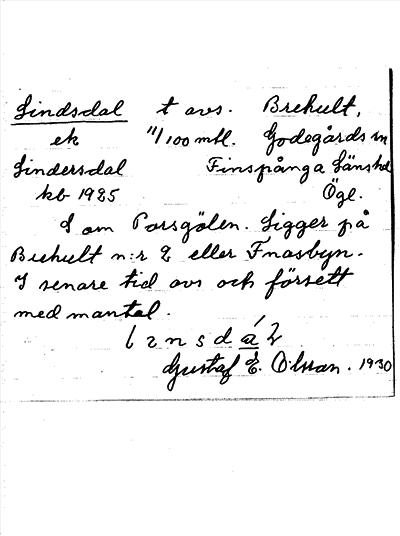 Lindsdal t avs. Brehult,
ek 11/100 mtl. Godegårds sn
Lindersdal Finspånga länshd
kb 1925 Ögl.
S om Porsgölen. Ligger på
Brehult n:r 2 eller Fnasbyn.
I senare tid avs och försett
med mantal.
Gustaf E. Olsson. 1930